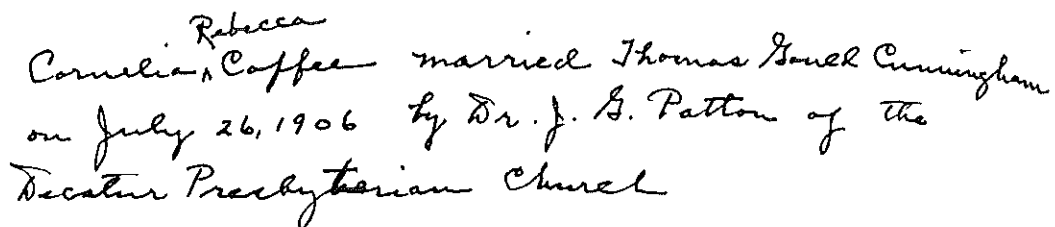 Cornelia Rebecca Coffee married Thomas Gould Cunningham
on July 26, 1906 by Dr. J. G. Patton of the
Decatur Presbyterian Church